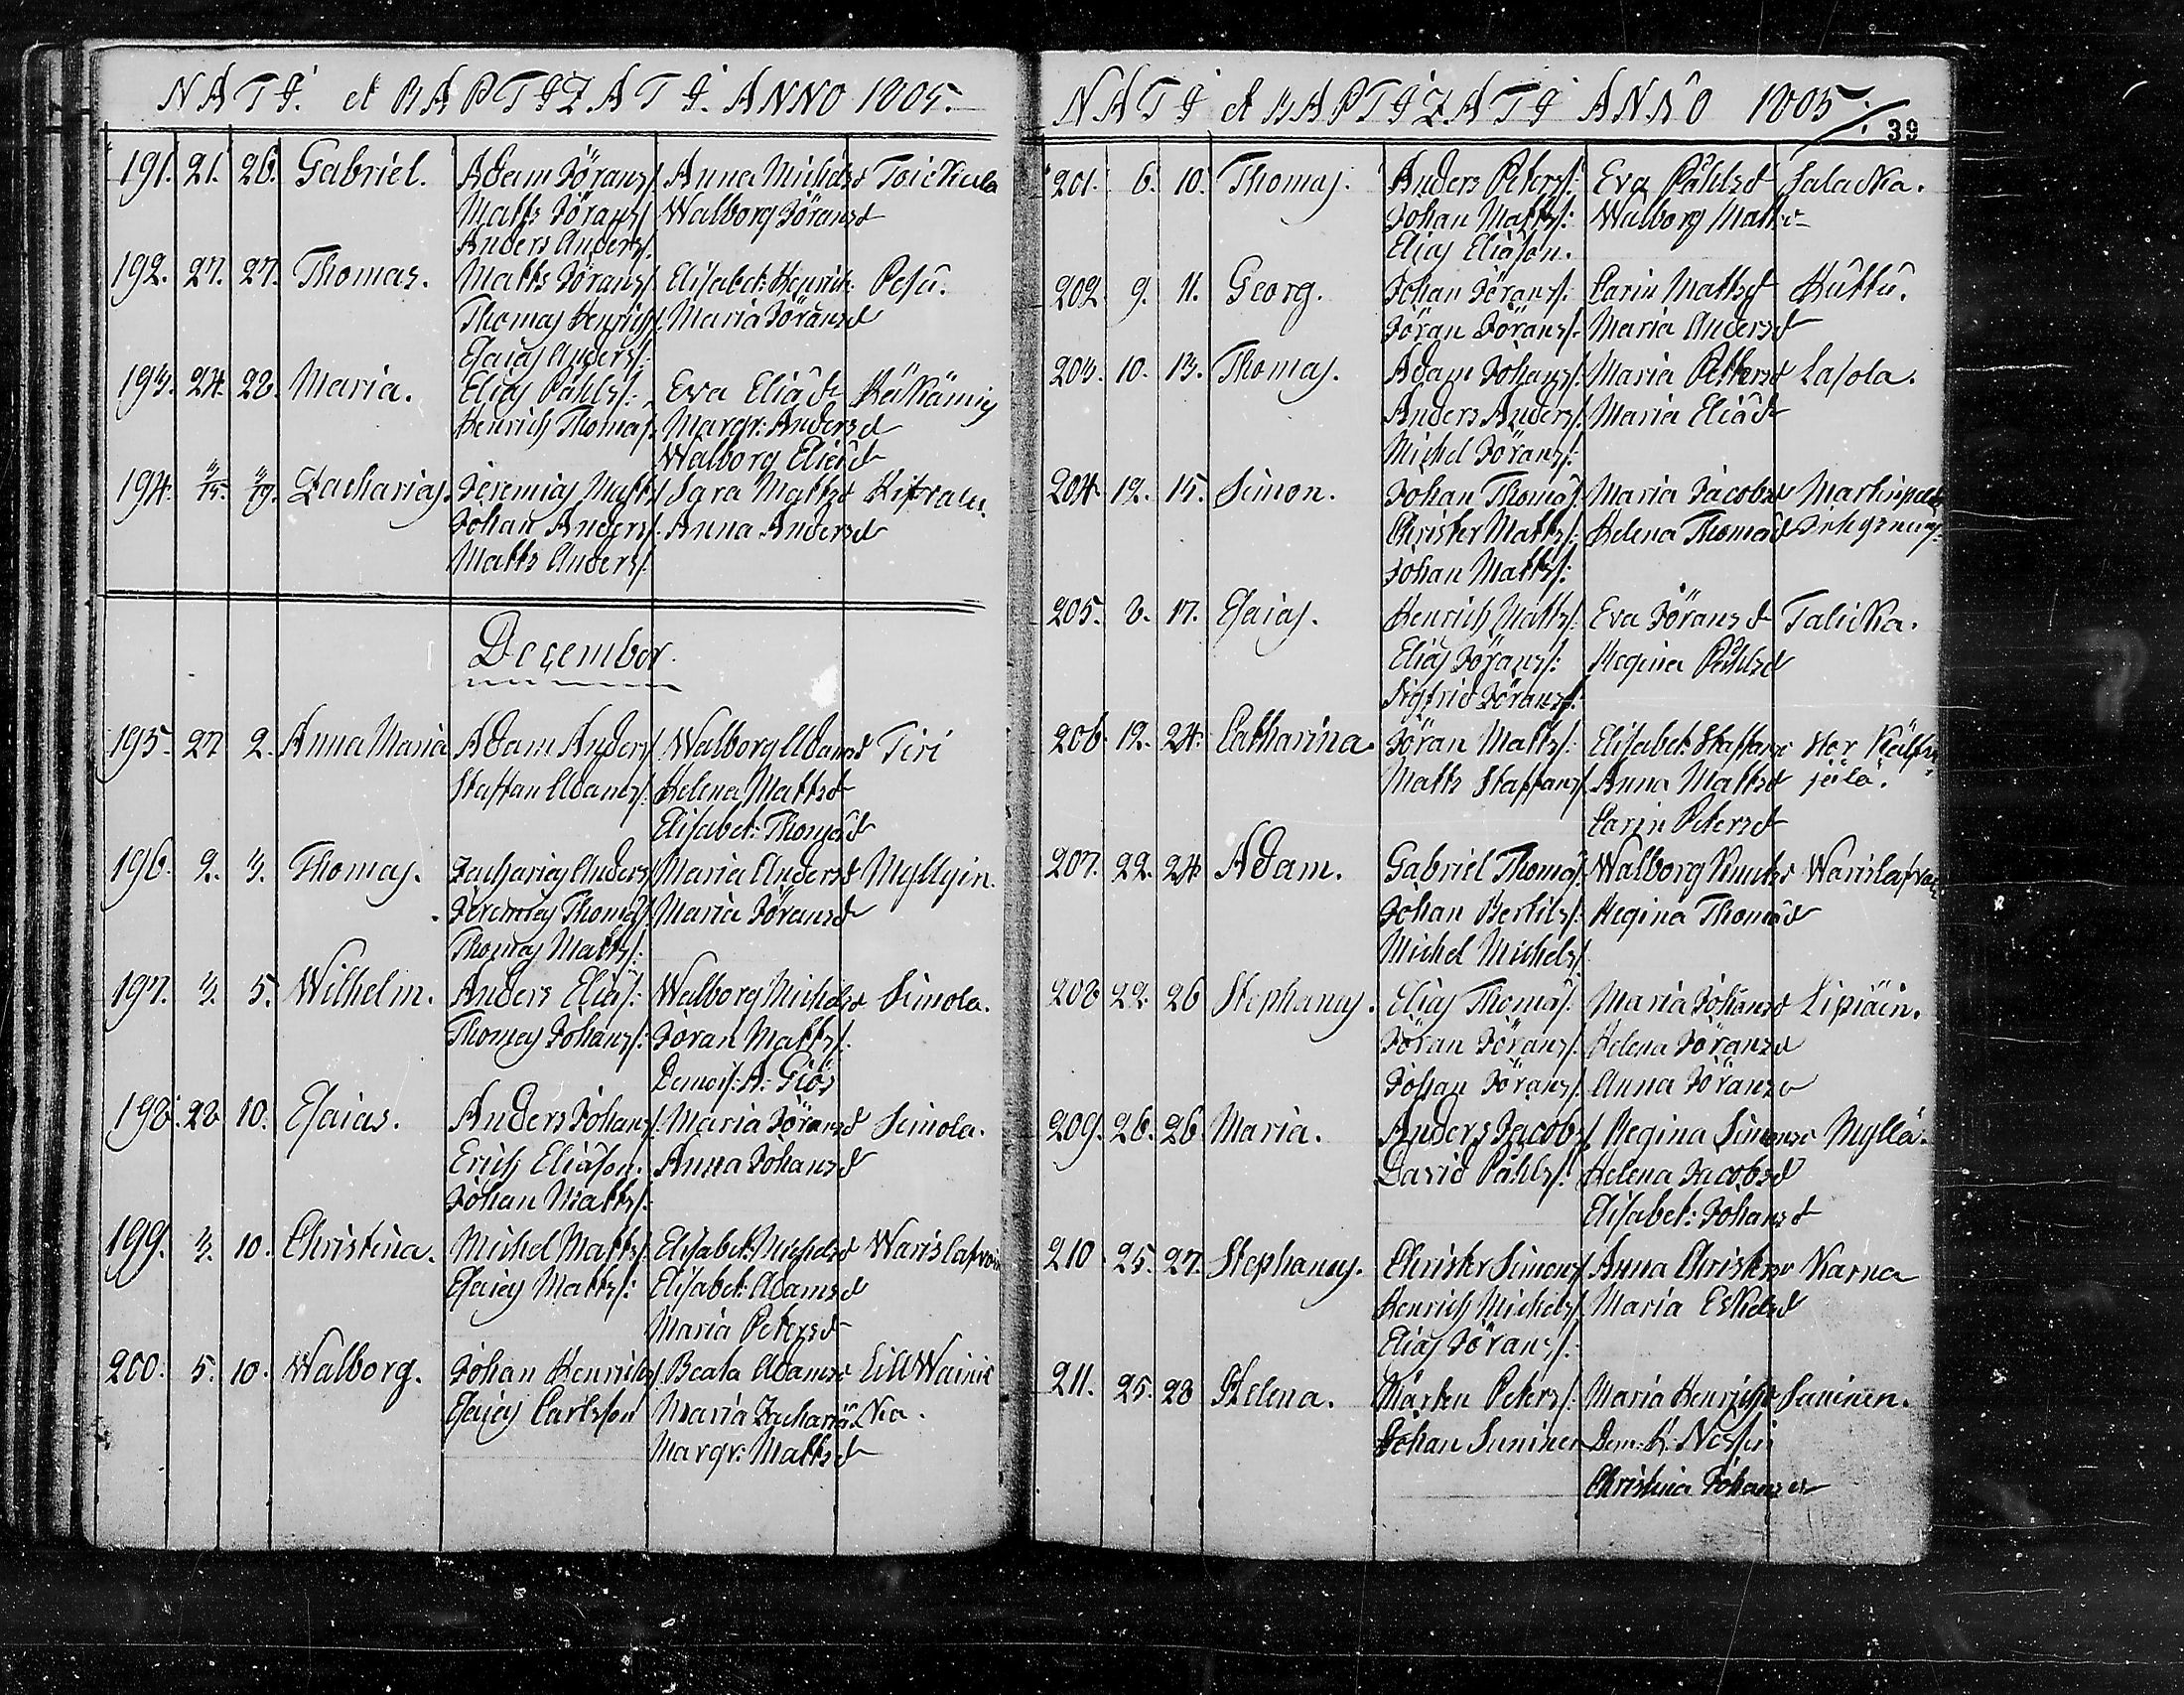 NATI. et BAPTIZATI. ANNO 1805.
191. 21. 26. Gabriel. Adam Jörans/: Anna Michelsd Toickula
Matts Jörans/: Walborg Göransd
Anders Anders/:
192. 27. 27. Thomas. Matts Jörans/: Elisabet: Henrich: Pesu.
Thomas Henrichs/: Maria Jöransd
Esaias Anders/:
193. 24. 28. Maria. Elias Påhls/: Eva Eliæd
Henrich Thomas/: Margr: Andersd
Walborg Eliæd
194. Zacharias. Jeremias Matts/: Sara Mattsd
Johan Anders/: Anna Andersd
Matts Anders/:
December.
195. 27 2. Anna Maria Adam Anders/: Walborg Adamsd Tiri
Staffan Adams/: Helena Mattsd
Elisabet: Thomæd
196. 2. 3. Thomas. Zacharias Anders/: Maria Andersd Myllyin.
Jeremias Thomæ/: Maria Jöransd
Thomas Matts/:
197. 3. 5. Wilhelm. Anders Eliæ/: Walborg Michelsd Simola.
Thomas Johans/: Jöran Matts/:
Demois: A: Giös
198. 28 10. Esaias. Anders Johans/: Maria Jöransd Simola.
Erich Eliæson. Anna Johansd
Johan Matts/:
199. 3. 10. Christina. Michel Matts/: Elisabet: Michelsd
Esaias Matts/: Elisabet: Adamsd
Maria Petersd
200. 5. 10. Walborg. Johan Henrichs/: Beata Adamsd Lill Wainic
Esaias Carlsson Maria Zachariæ ka.
Margr: Mattsd
NATI et BAPTIZATI ANNO 1805 /: 39
201. 6. 10. Thomas. Anders Peters/: Eva Påhlsd Salacka.
Johan Matts/: Walborg Matts
Elias Eliæson.
202 9. 11. Georg. Johan Jörans/: Carin Mattsd Huttu.
Jöran Jörans/: Maria Andersd
203. 10. 13. Thomas. Adam Johans/: Maria Petersd Lasola.
Anders Anders/: Maria Eliæd
Michel Jörans/:
204 12. 15. Simon. Johan Thomæ/: Maria Jacobsd
Christer Matts/: Helena Thomæd
Johan Matts/:
205. 8. 17. Esaias. Henrich Matts/: Eva Jöransd Talicka.
Elias Jörans/: Regina Påhlsd
Sigfrid Jörans/:
206 12. 24. Catharina. Jöran Matts/: Elisabet: Staffansd Stor
Matts Staffans/: Anna Mattsd
Carin Petersd
207. 22. 24 Adam. Gabriel Thomæ/: Walborg Knutsd
Johan Bertils/: Regina Thomæd
Michel Michels/:
208 22. 26 Stephanus. Elias Thomæ/: Maria Johansd Lipiäin.
Jöran Jörans/: Helena Jöransd
Johan Jörans/: Anna Jöransd
209. 26. 26 Maria. Anders Jacobs/: Regina Simonsd Myllä.
David Påhls/: Helena Jacobsd
Elisabet: Johansd
210 25. 27. Stephanus. Christer Simons/: Anna Christersd Karna
Henrich Michels/: Maria Eskelsd
Elias Jörans/:
211. 25. 28 Helena. Mårten Peters/: Maria Henrichsd Suninen.
Johan Suninen Dem:
Christina Johansd